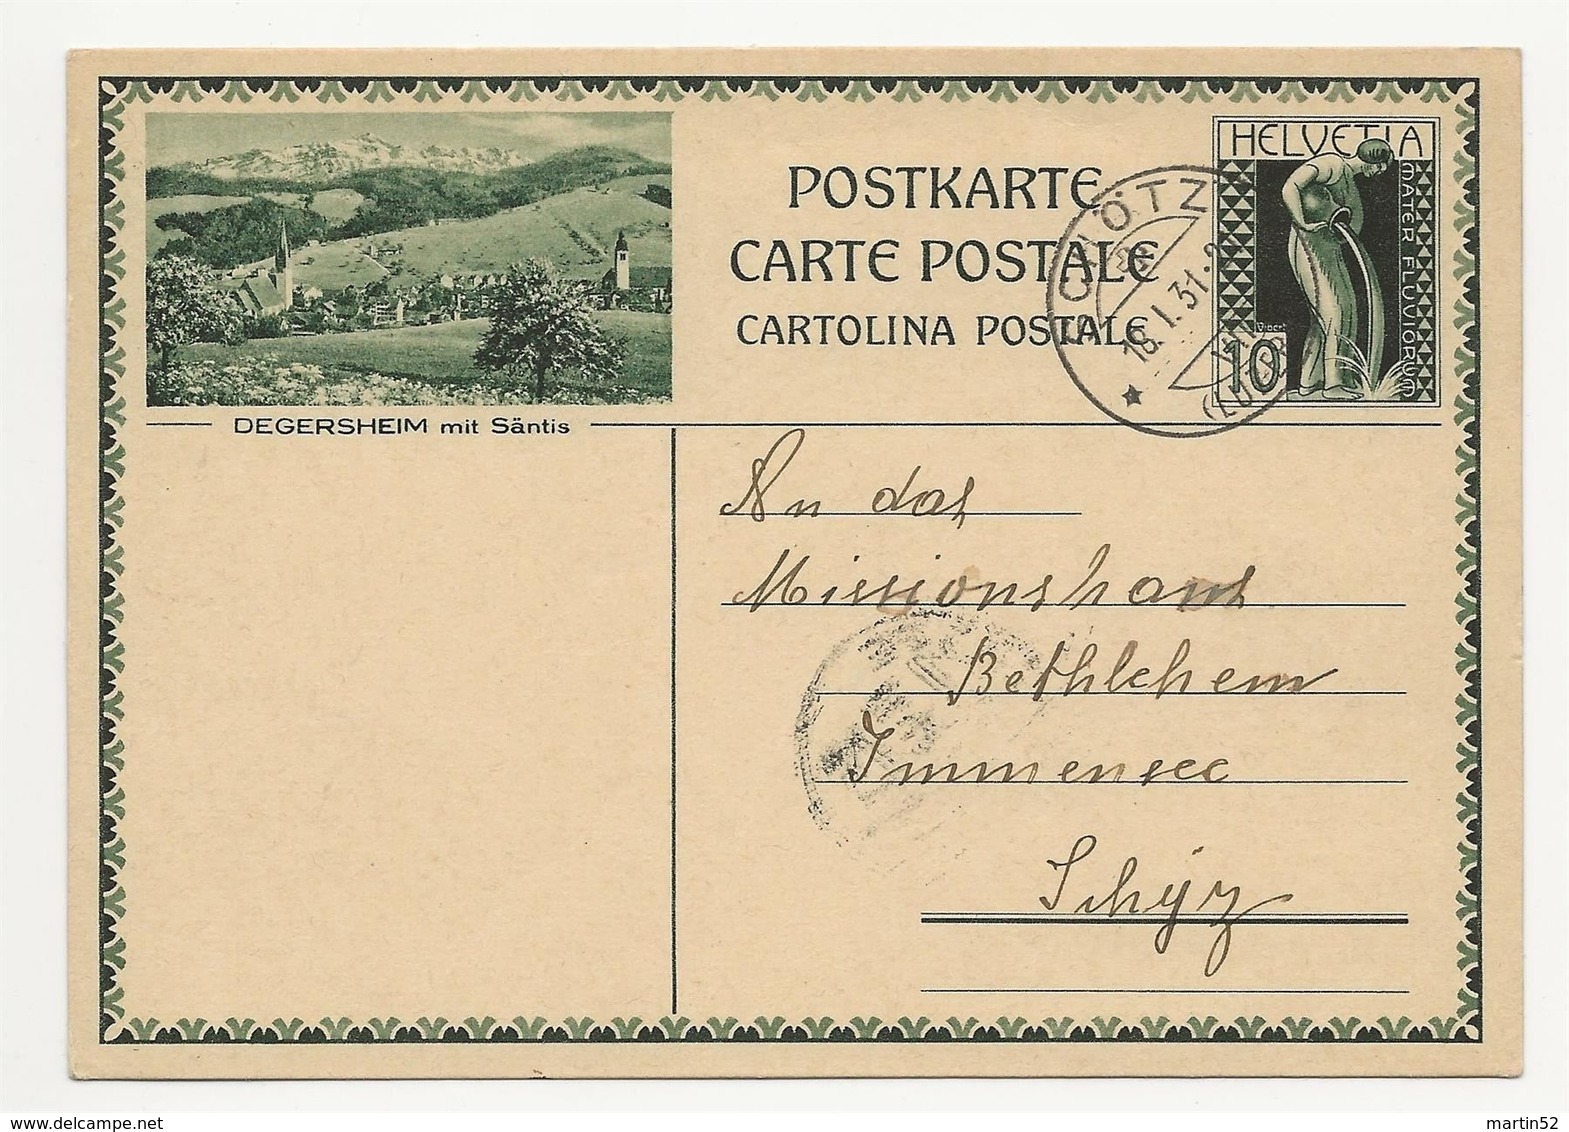 POSTKARTE
CARTE POSTALE
CARTOLINA POSTALE
HELVETIA
MATER FLUVIORUM
10
SCHÖTZ
18.I.31.
(LUZERN)
DEGERSHEIM mit Säntis
An das
Missionshaus
Bethlehem
Immensee
Schÿz
http://www.delcampe.net
martin52